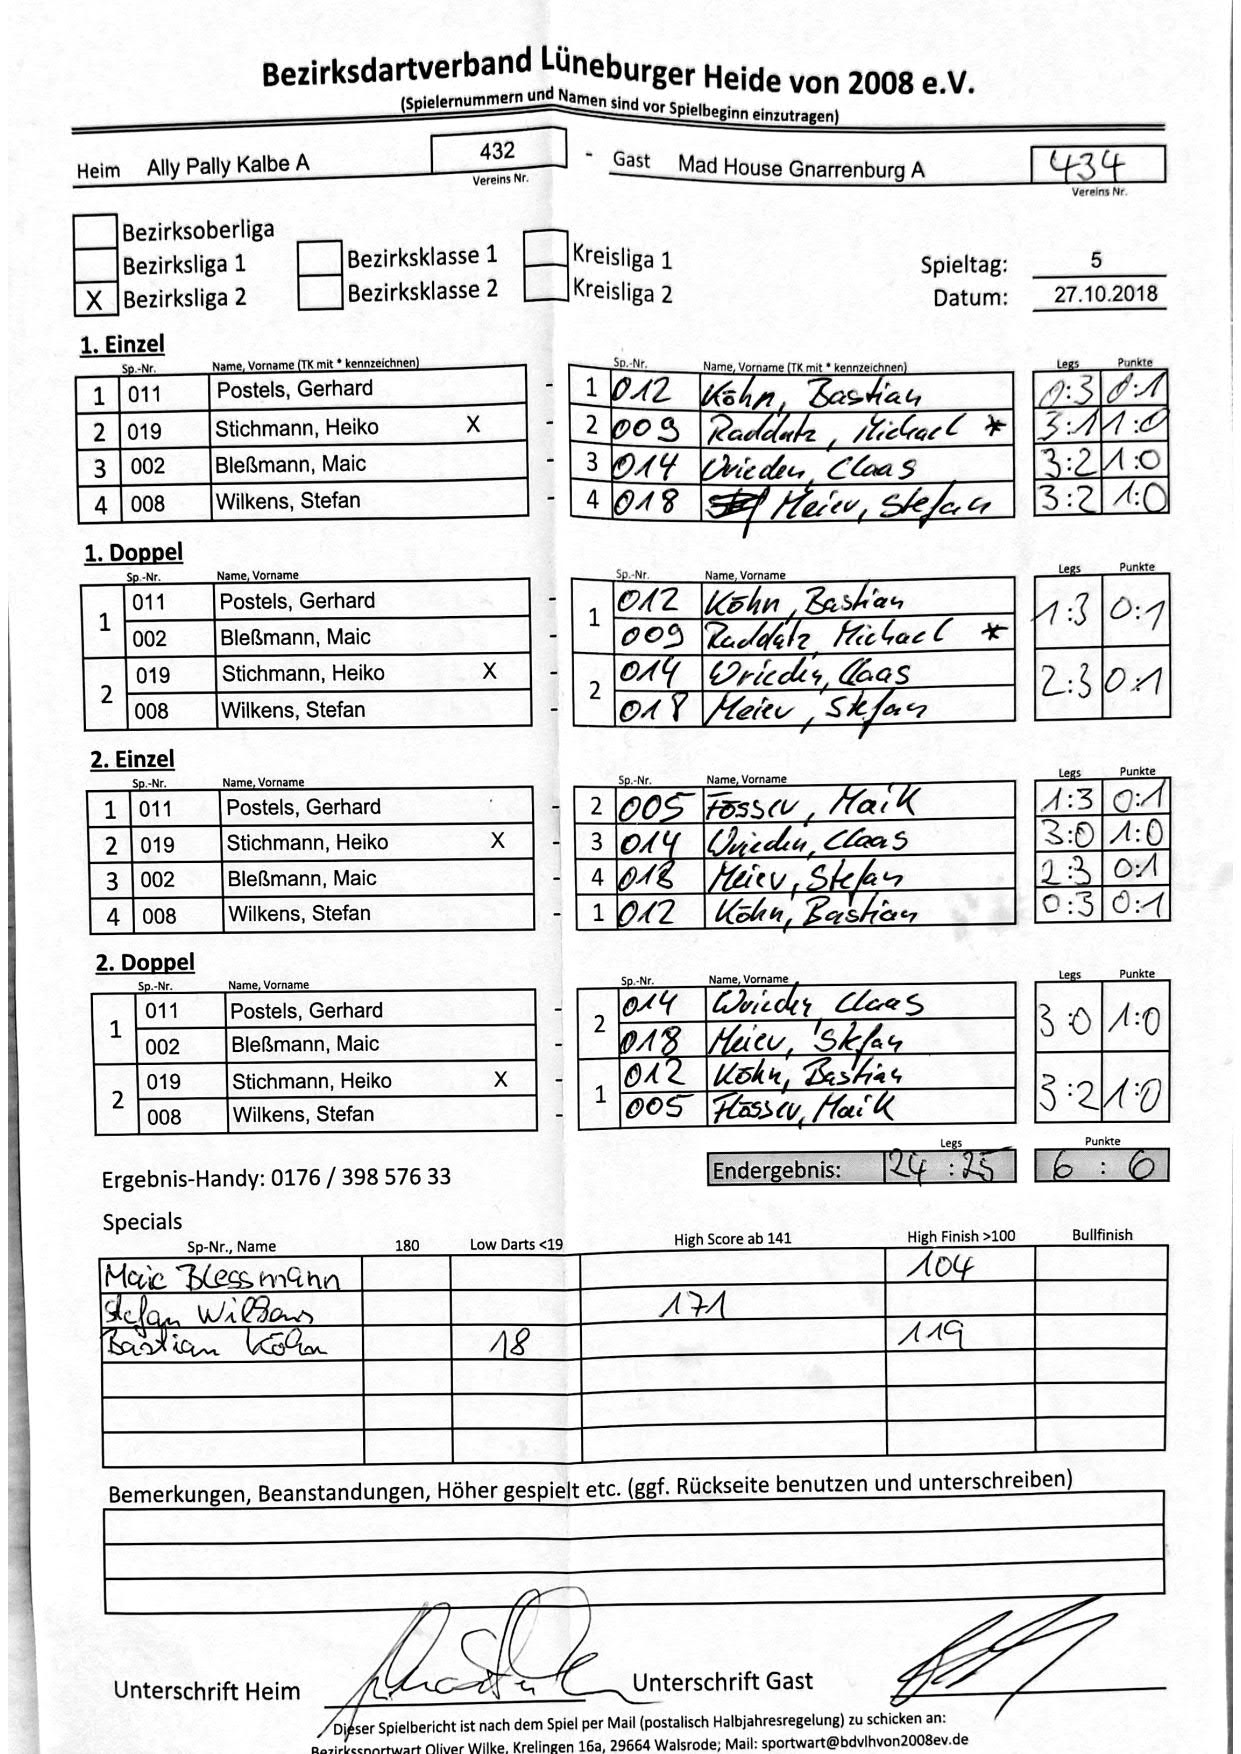 Bezirksdartverband Lüneburger Heide von 2008 e.V.
(Spielernummern und Namen sind vor Spielbeginn einzutragen)
Heim Ally Pally Kalbe A 432 - Gast Mad House Gnarrenburg A 434
Vereins Nr. Vereins Nr.
Bezirksoberliga
Bezirksliga 1 Bezirksklasse 1 Kreisliga 1 Spieltag: 5
X Bezirksliga 2 Bezirksklasse 2 Kreisliga 2 Datum: 27.10.2018
1. Einzel
Sp.-Nr. Name, Vorname (TK mit * kennzeichnen) Sp.-Nr. Name, Vorname (TK mit * kennzeichnen) Legs Punkte
1 011 Postels, Gerhard - 1 012 Köhn, Bastian 0:3 0:1
2 019 Stichmann, Heiko X - 2 009 Raddatz, Michael * 3:1 1:0
3 002 Bleßmann, Maic - 3 014 Wrieden, Claas 3:2 1:0
4 008 Wilkens, Stefan - 4 018 Meier, Stefan 3:2 1:0
1. Doppel
Sp.-Nr. Name, Vorname Sp.-Nr. Name, Vorname Legs Punkte
1 011 Postels, Gerhard - 1 012 Köhn, Bastian 1:3 0:1
002 Bleßmann, Maic - 009 Raddatz, Michael *
2 019 Stichmann, Heiko X - 2 014 Wrieden, Claas 2:3 0:1
008 Wilkens, Stefan - 018 Meier, Stefan
2. Einzel
Sp.-Nr. Name, Vorname Sp.-Nr. Name, Vorname Legs Punkte
1 011 Postels, Gerhard - 2 005 Flösser, Maik 1:3 0:1
2 019 Stichmann, Heiko X - 3 014 Wrieden, Claas 3:0 1:0
3 002 Bleßmann, Maic - 4 018 Meier, Stefan 2:3 0:1
4 008 Wilkens, Stefan - 1 012 Köhn, Bastian 0:3 0:1
2. Doppel
Sp.-Nr. Name, Vorname Sp.-Nr. Name, Vorname Legs Punkte
1 011 Postels, Gerhard - 2 014 Wrieden, Claas 3:0 1:0
002 Bleßmann, Maic - 018 Meier, Stefan
2 019 Stichmann, Heiko X - 1 012 Köhn, Bastian 3:2 1:0
008 Wilkens, Stefan - 005 Flösser, Maik
Legs Punkte
Ergebnis-Handy: 0176 / 398 576 33 Endergebnis: 24 : 25 6 : 6
Specials
Sp-Nr., Name 180 Low Darts <19 High Score ab 141 High Finish >100 Bullfinish
Maic Blessmann 104
Stefan Wilkens 171
Bastian Köhn 18 119
Bemerkungen, Beanstandungen, Höher gespielt etc. (ggf. Rückseite benutzen und unterschreiben)
Unterschrift Heim Unterschrift Gast
Dieser Spielbericht ist nach dem Spiel per Mail (postalisch Halbjahresregelung) zu schicken an:
Bezirkssportwart Oliver Wilke, Krelingen 16a, 29664 Walsrode; Mail: sportwart@bdvlhvon2008ev.de